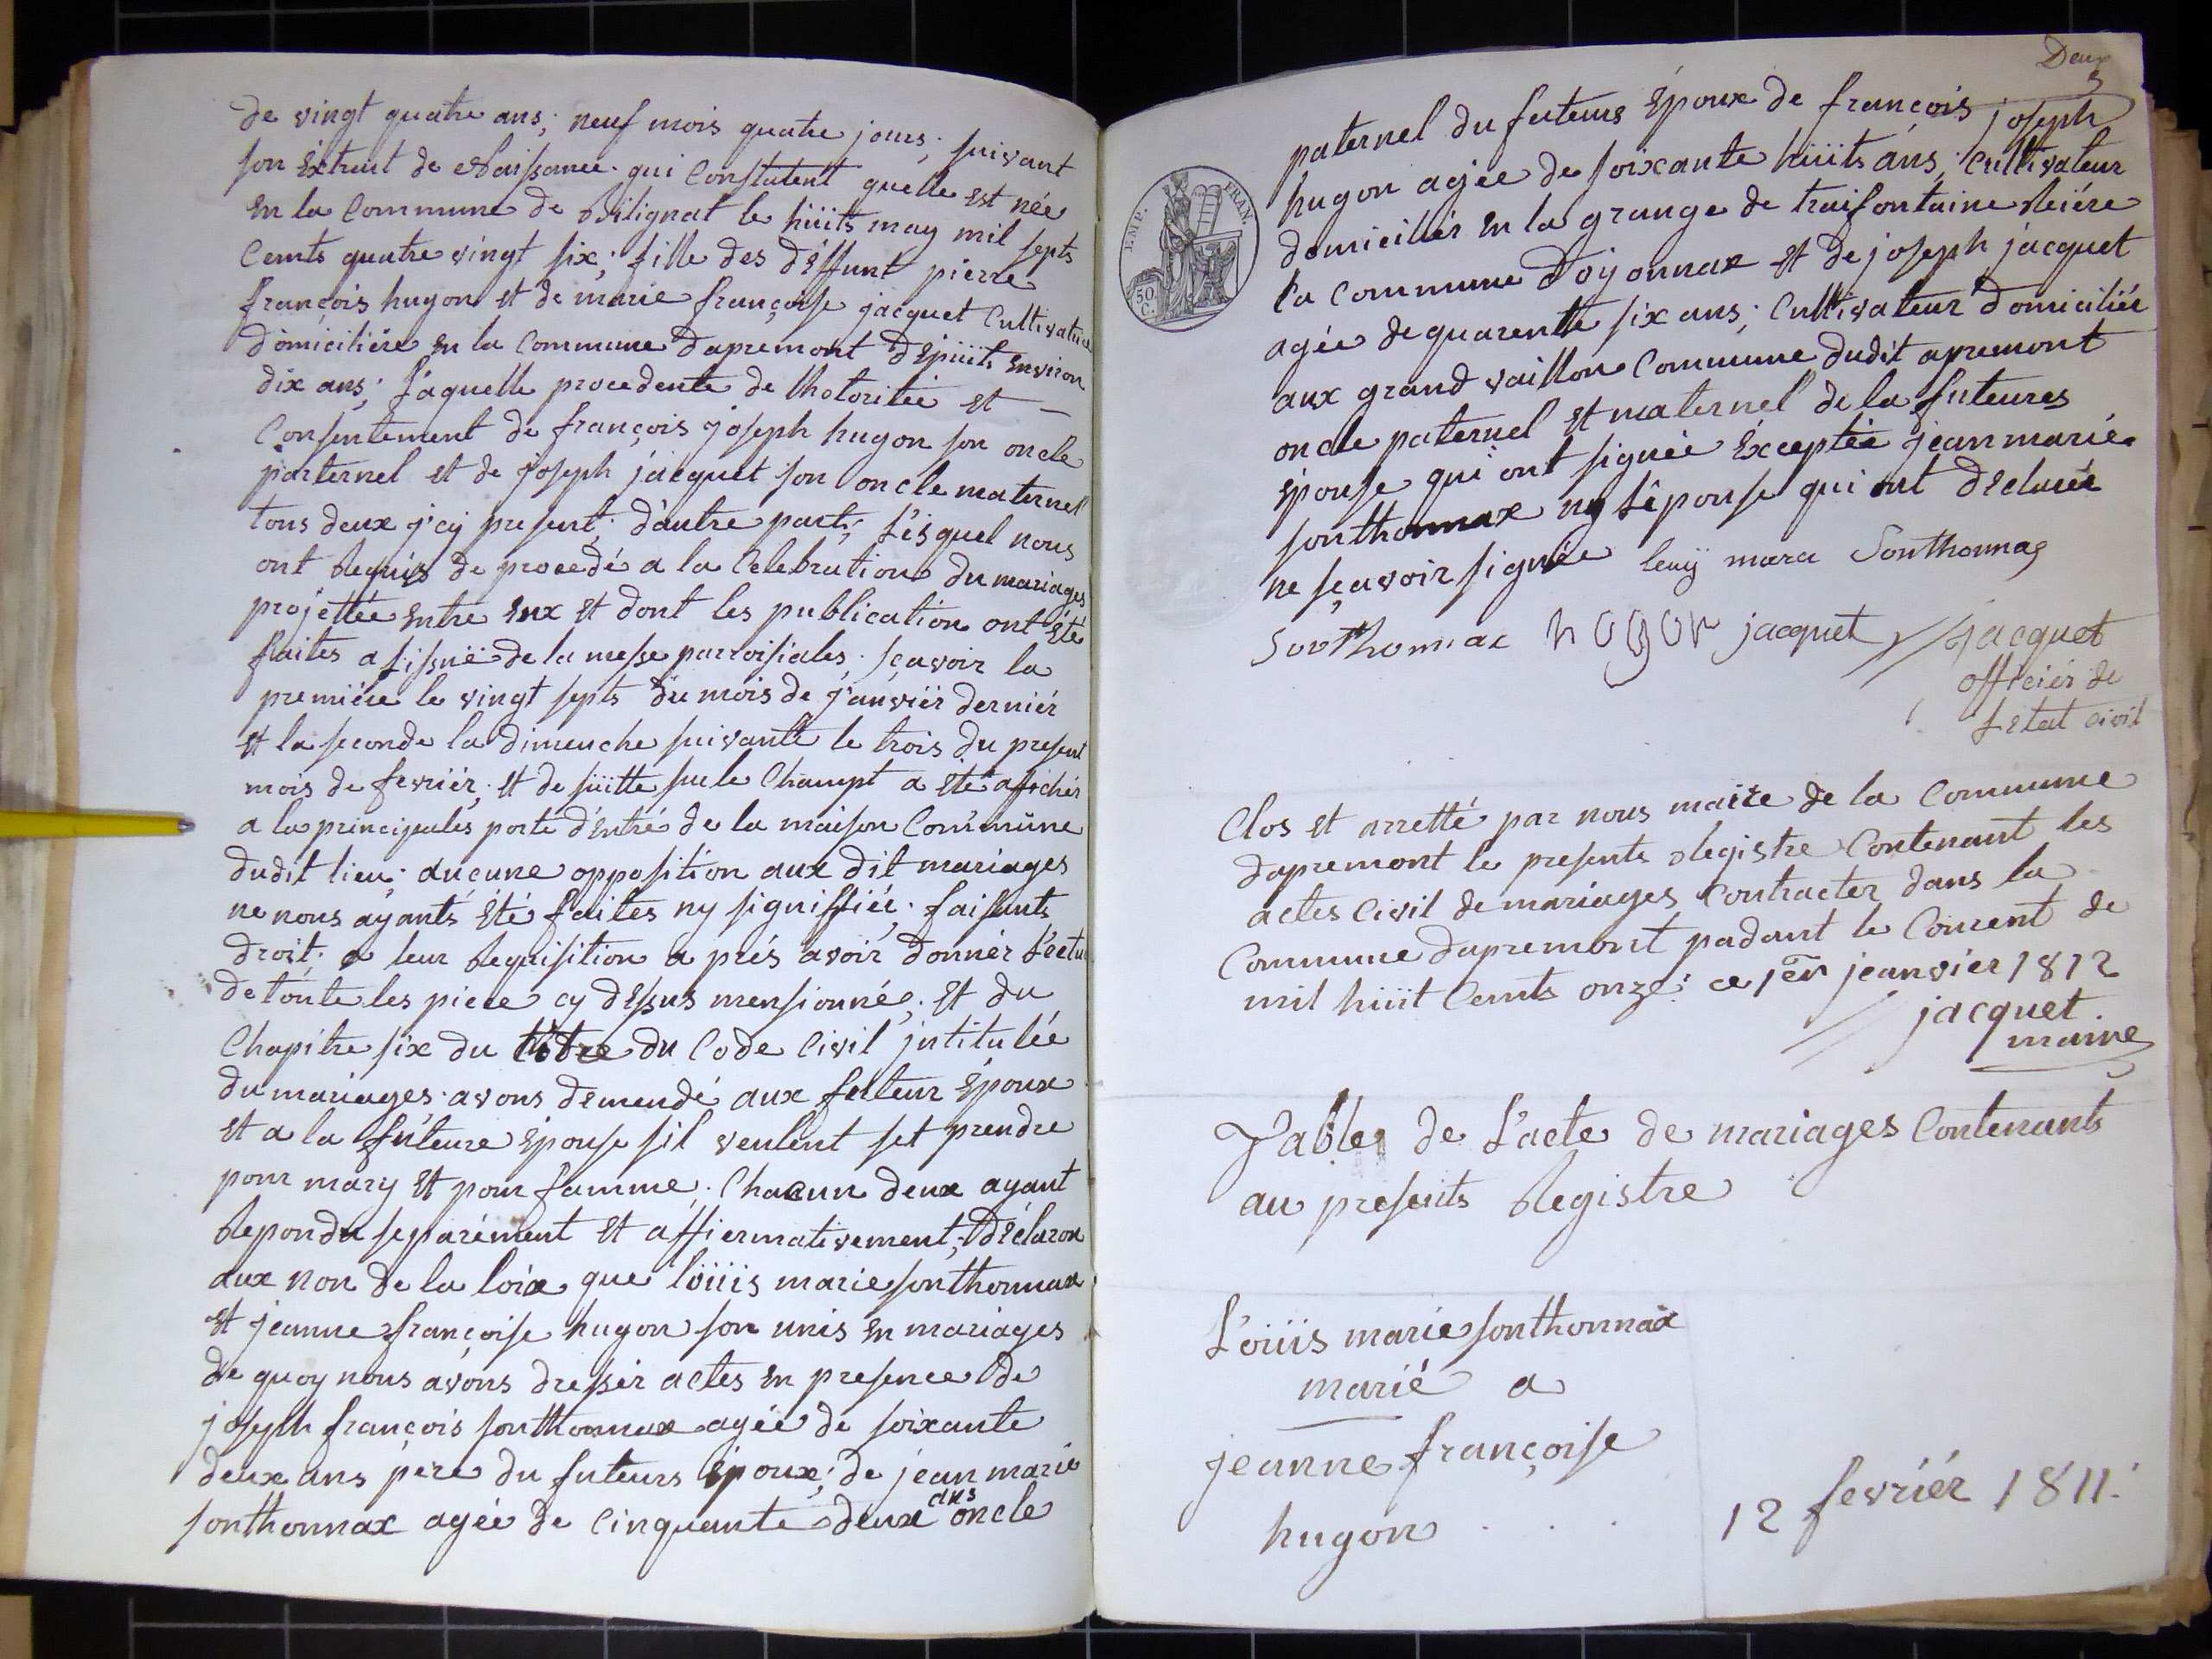 de vingt quatre ans; neuf mois quatre jours; suivant
son Extrait de Naissance qui Constatent quelle est née
en la Commune de Bélignat le hüits may mil septs
Cents quatre vingt six; fille des déffunt pierre
françois hugon et de marie françoise jacquet Cultivatrice
domiciliére en la Commune dapremont dépüits environ
dix ans; Laquelle procedente de lhotoritée et —
Consentement de françois joseph hugon son oncle
parternel et de joseph jacquet son oncle maternel
tous deux j'cy present; d'autre part; Lésquel nous
ont Requis de procedé a la Celebration du mariages
projettée entre eux et dont les publication ont été
faites a lissuë de la messe parroisiales; sçavoir la
premiére le vingt septs du mois de janviér derniér
et la seconde la dimenche suivante le trois du present
mois de fevriér; et de süitte sur le Champt a été affichér
a la principales porte d'entré de la maison Commune
dudit lieu; aucune opposition aux dit mariages
ne nous ayants été faites ny signiffiée; faisants
droit; a leur Requisition a prés avoir donnér Lectu
de toute les piece cy déssus mensionné; et du
Chapitre six du titre du Code Civil jntitulée
du mariages avons demendé aux futeur époux
et a la futeure épouse sil veulent set prendre
pour mary et pour famme; Chacun deux ayant
Repondu separément et affiermativement; Déclaron
aux non de la loix que loüis marie sonthonnax
et jeanne françoise hugon son unis en mariages
de quoy nous avons dressér actes en presence de
joseph françois sonthonnax agée de soixante
deux ans pere du futeurs époux; de jean marie
sonthonnax agée de Cinquante deux ans oncle
Deux
paternel du futeurs époux de françois joseph
hugon agée de soixante hüits ans; Cultivateur
domiciliér en la grange de traifontaine Reiére
la Commune Doyonnax et de joseph jacquet
agée de quarente six ans; Cultivateur domiciliér
aux grand vaillon Commune dudit apremont
oncle paternel et maternel de la futeures
épouse qui ont signée éxceptée jean marie
sonthonnax ny lépouse qui ont déclarée
ne sçavoir signée
Sonthonnax
Sonthonnax hugon jacquet jacquet
officiér de
Letat civil
IMP. FRAN
50
C.
Clos et arretté par nous maire de la Commune
dapremont le presents Registre Contenant les
actes Civil de mariages Contracter dans la
Commune dapremont padant le Courent de
mil hüit Cents onze; ce 1er jeanvier 1812
jacquet
maire
Table de L'acte de mariages Contenants
au presents Registre
Loüis marie sonthonnax
marié a
jeanne françoise
hugon . . . 12 fevriér 1811.